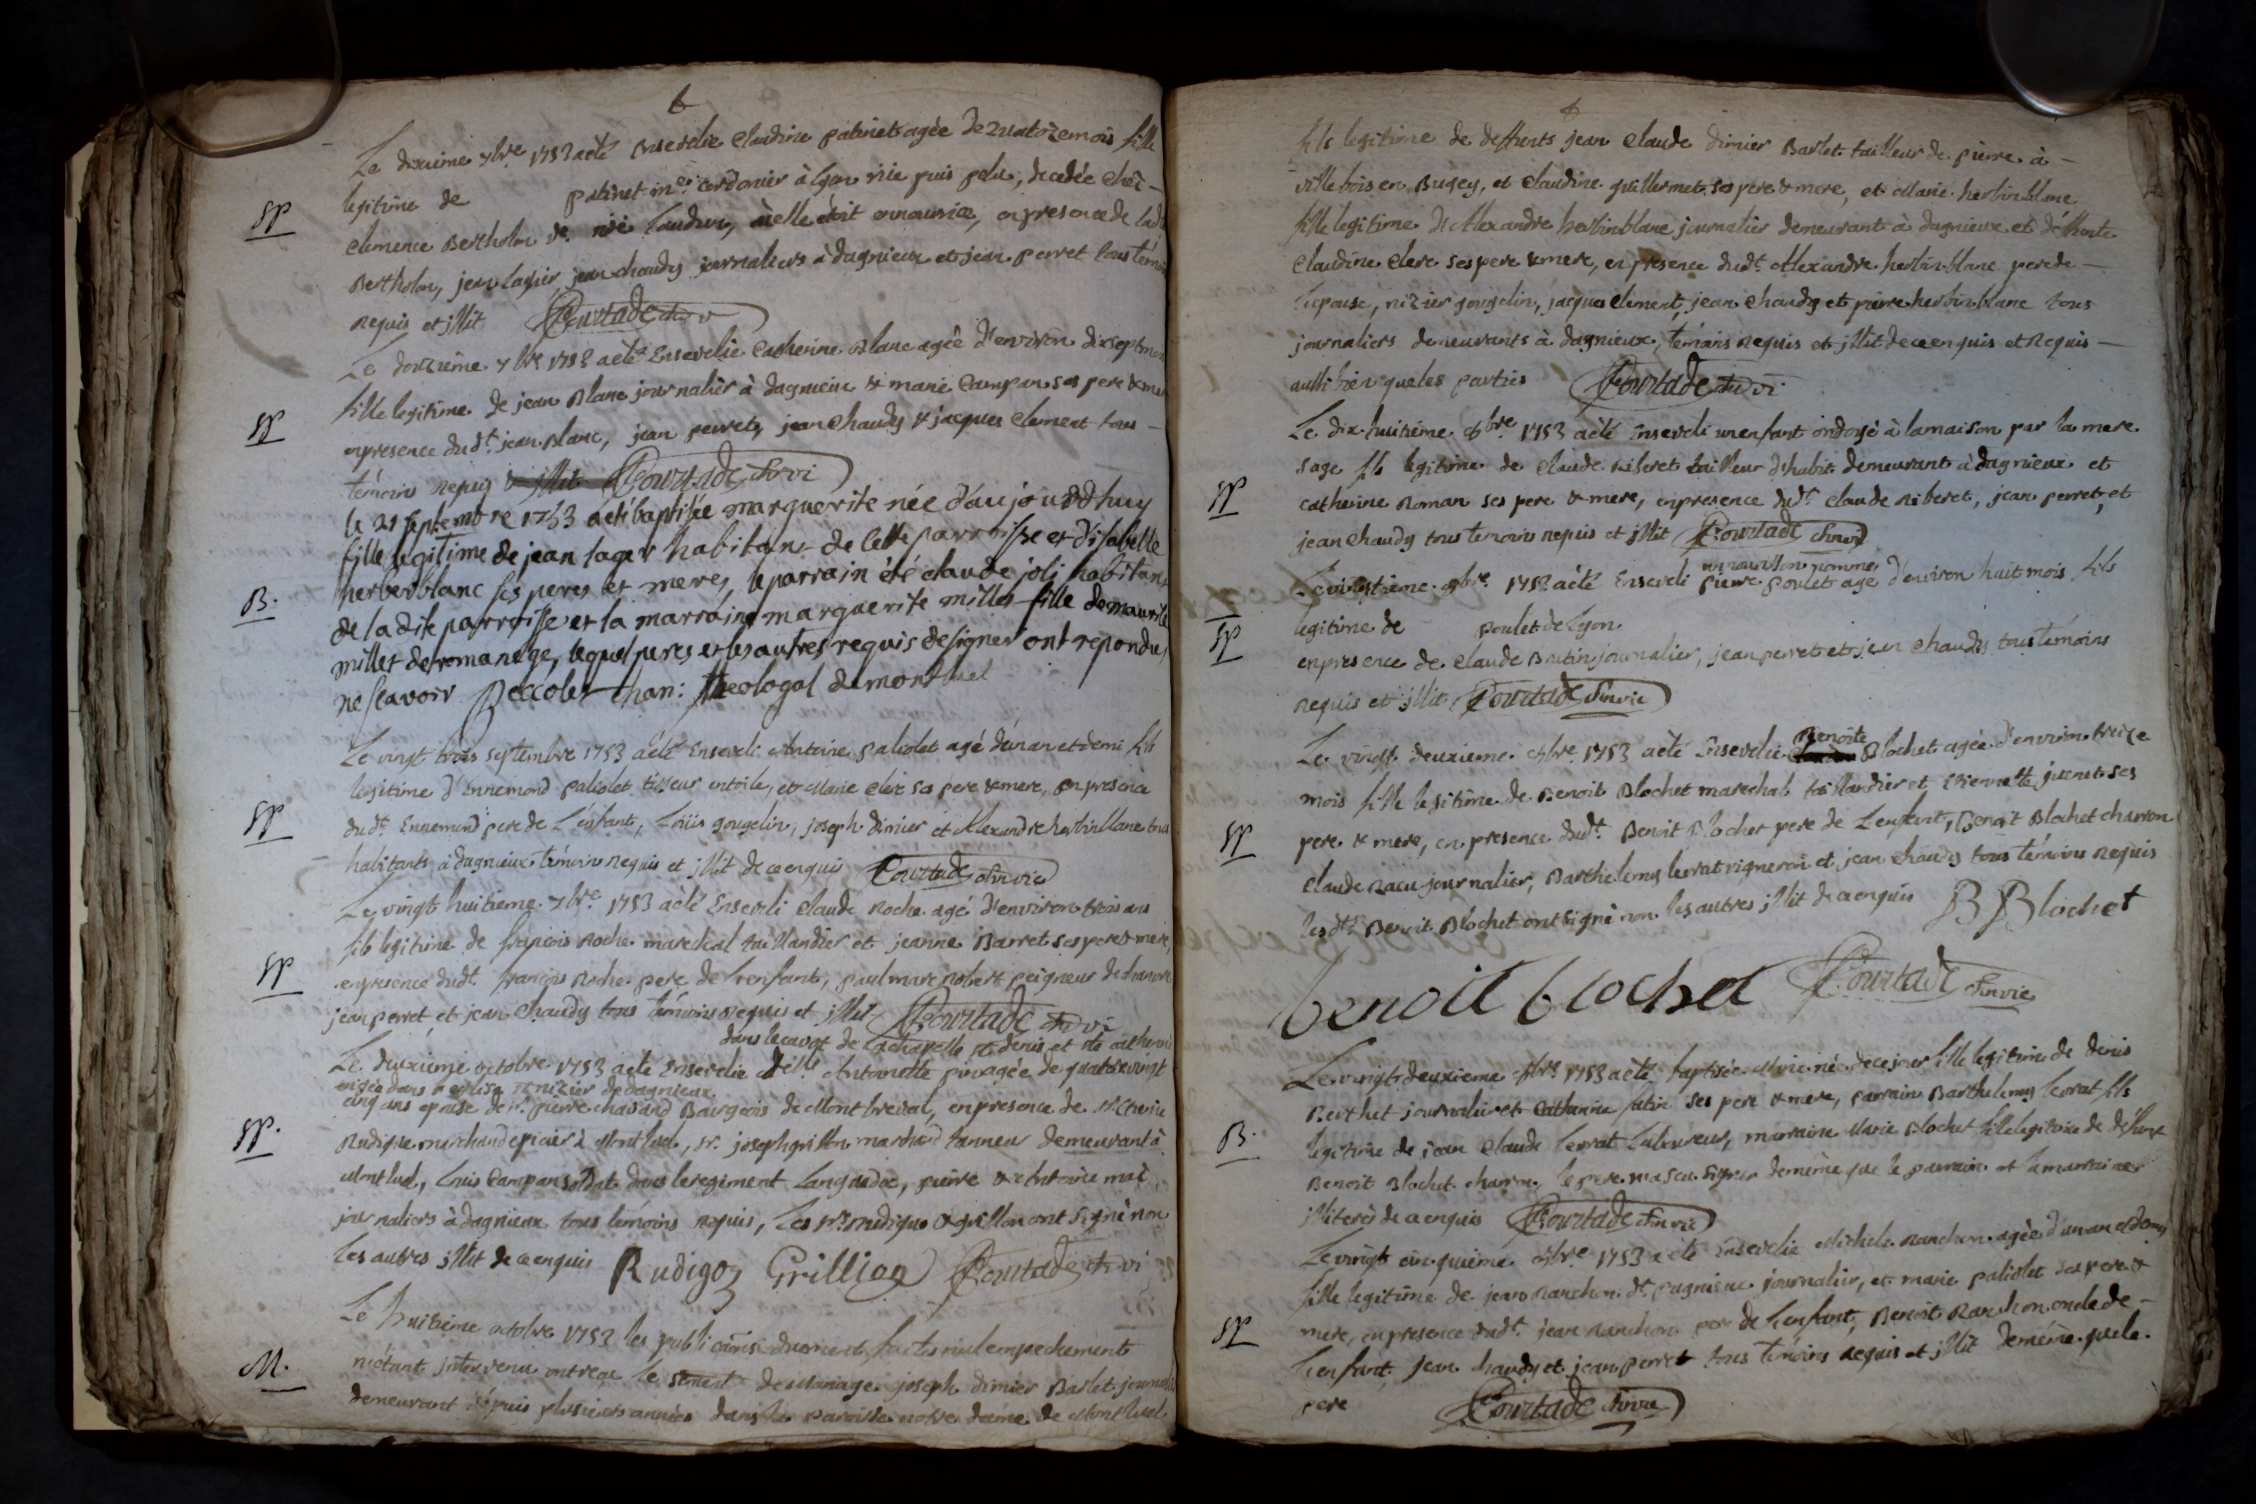 Le dixieme 7bre 1753 a été Ensevelie Claudine patinet agée de quatorze mois fille
legitime de patinet me cordonier à Lyon rüe puis pelu, decedée chès
SP
Clemence Bertholon, où elle étoit en nourice, en presence de ladt
Bertholon, jean lager, jean chaudy journaliers à dagnieux et jean perret tous témoins
requis et jllit Courtade Curé
Le douzieme 7bre 1753 a été Ensevelie Catherine Blanc agée d'environ dix sept mois
fille legitime de jean Blanc journalier à dagnieux & marie Campan ses pere & mere
SP
en presence dudt jean Blanc, jean perret, jean chaudy & jacques Clement tous
témoins requis & jllit Courtade
le 21 septembre 1753 a été baptisée marguerite née d'aujourdhuy
fille legitime de jean lager habitant de cette parroisse et d'isabelle
herbinblanc ses peres et meres, le parrain été claude joli habitant
B.
de la dite parroisse et la marraine marguerite millet fille de maurile
millet de romanege, lequel peres et les autres requis de signer ont repondus
ne scavoir Beccolet chan: theologal de montluel
Le vingt trois septembre 1753 a été Enseveli Antoine paliolet agé d'un an et demi fils
legitime d'Ennemond paliolet tisseur en toile, et Marie Clerc ses pere & mere, en presence
SP
dudt Ennemond pere de L'enfant, Loüis gougelin, joseph dimier et Alexandre herbinblanc tous
habitants à dagnieux témoins requis et jllit de ce enquis Courtade
Le vingt huitieme 7bre 1753 a été Enseveli Claude Roche agé d'environ trois ans
fils legitime de françois Roche marechal taillandier et jeanne Barret ses pere & mere,
SP
en presence dudt françois Roche pere de l'enfant, paul marc Robert peigneur de chanvre
jean perret, et jean Chaudy tous témoins requis et jllit Courtade
dans le caveau de la chapelle St denis et ste catherine
Le deuxieme octobre 1753 a été Ensevelie Delle Antoinette pin agée de quatre vingt
erigée dans l'eglise St nizier de dagnieux
cinq ans epouse de Sr pierre chasand Bourgeois de Montreval, en presence de
SP.
Rudigoz marchand epicier à Montluel, sr. joseph grillon marchand tanneur demeurant à
Montluel, Loüis Campan soldat dans le regiment Languedoc, pierre & Antoine
journaliers à dagnieux tous témoins requis, Les srs rudigoz & grillon ont signé non
les autres jllit de ce enquis Rudigoz Grillion Courtade
Le huitieme octobre 1753 les publications dument faites nul empechement
M.
n'étant intervenu ont reçu le de Mariage joseph dimier Barlet journalier
demeurant depuis plusieurs années dans la paroisse notre dame de Montluel
fils legitime de deffunts jean Claude dimier Barlet tailleur de pierre à
villebois en Bugey, et Claudine guillermet ses pere & mere, et Marie herbinblanc
fille legitime d'Alexandre herbinblanc journalier demeurant à dagnieux et deffunte
Claudine Clerc ses pere & mere, en presence dudt Alexandre herbinblanc pere de
l'epouse, nizier gougelin, jacques Clement, jean Chaudy et pierre herbinblanc tous
journaliers demeurants à dagnieux, témoins requis et jllit de ce enquis et Requis
aussi bien que les parties Courtade
Le dix huitieme 8bre 1753 a été Enseveli un enfant ondoyé à la maison par la mere
sage fils legitime de Claude Riberet tailleur d'habit demeurant à dagnieux et
SP
Catherine Roman ses pere & mere, en presence dudt Claude Riberet, jean perret, et
jean chaudy tous temoins requis et jllit Courtade
un nourisson nommé
Le vingtieme 8bre 1753 a été Enseveli pierre poulet agé d'environ huit mois fils
legitime de poulet de Lyon
SP
en presence de Claude Boutin journalier, jean perret et jean Chaudy tous témoins
requis et jllit Courtade
Benoite
Le vingt deuxieme 8bre 1753 a été Ensevelie Blochet agée d'environ treize
mois fille legitime de Benoit Blochet marechal taillandier et Pierrette ses
SP
pere & mere, en presence dudt Benoit Blochet pere de L'enfant, Benoit Blochet charron
Claude journalier, Barthelemy lerrat vigneron et jean chaudy tous témoins requis
lesdts Benoit Blochet ont signé non les autres jllit de ce enquis B Blochet
benoit blochet Courtade
Le vingt deuxieme 8bre 1753 a été baptisée Marie née de ce jour fille legitime de denis
Berthet journalier et Catherine ses pere & mere, parrain Barthelemy lerrat fils
B.
legitime de jean Claude lerrat Laboureur, marraine Marie Blochet fille legitime de deffunt
Benoit Blochet charron, le pere n'a scu signer de même que le parrain et la marraine
jlliterés de ce enquis Courtade
Le vingt cinquieme 8bre 1753 a été Ensevelie Michele Ranchon agée d'un an et demi
fille legitime de jean Ranchon dt journalier, et marie paliolet ses pere &
SP
mere, en presence dudt jean Ranchon pere de l'enfant, Benoit Ranchon oncle de
l'enfant, jean chaudy et jean perret tous témoins requis et jllit de même que le
pere Courtade